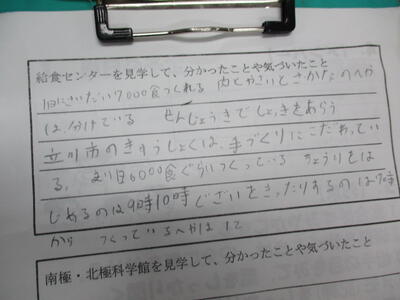 給食センターを見学して、分かったことや気づいたこと
1日にさいだい7000食つくれる 肉とやさいとさかなのへや
は、分けている せんじょうきでしょっきをあらう
立川市のきゅうしょくは、手づくりにこだわってい
る、 1日6000食ぐらいつくっている ちょうりをは
じめるのは9時10時 ざいをきったりするのは
から つくっているへやは
南極・北極科学館を見学して、分かったことや気づいたこと